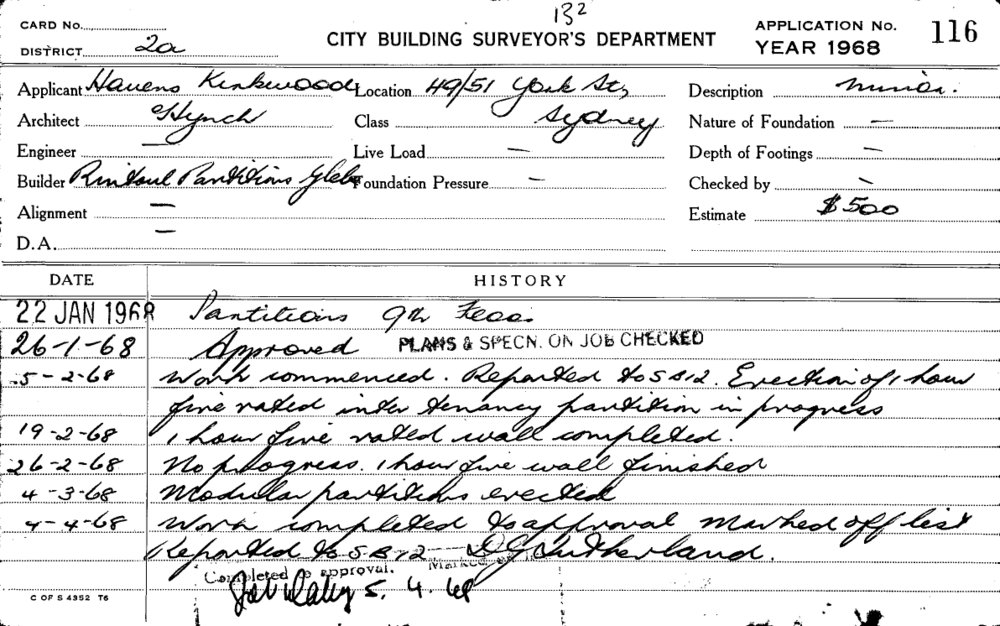 13²
CARD No.
DISTRICT 2a
CITY BUILDING SURVEYOR'S DEPARTMENT
APPLICATION No. 116
YEAR 1968
Applicant Havens Kirkwood Location 49/51 York St, Description minor.
Architect Hynch Class Sydney Nature of Foundation —
Engineer — Live Load — Depth of Footings —
Builder Rintoul Partitions Glebe Foundation Pressure — Checked by —
Alignment — Estimate $500
D.A. —
DATE HISTORY
22 JAN 1968 Partitions 9th Floor
26-1-68 Approved PLANS & SPECN. ON JOB CHECKED
5-2-68 Work commenced. Reported to SB12. Erection of 1 hour
fire rated inter tenancy partition in progress
19-2-68 1 hour fire rated wall completed.
26-2-68 No progress. 1 hour fire wall finished
4-3-68 Modular partitions erected
4-4-68 Work completed to approval Marked off list
Reported to SB12 — D G Sutherland.
Completed to approval. Marked
5.4.68
C OF S 4352 T6